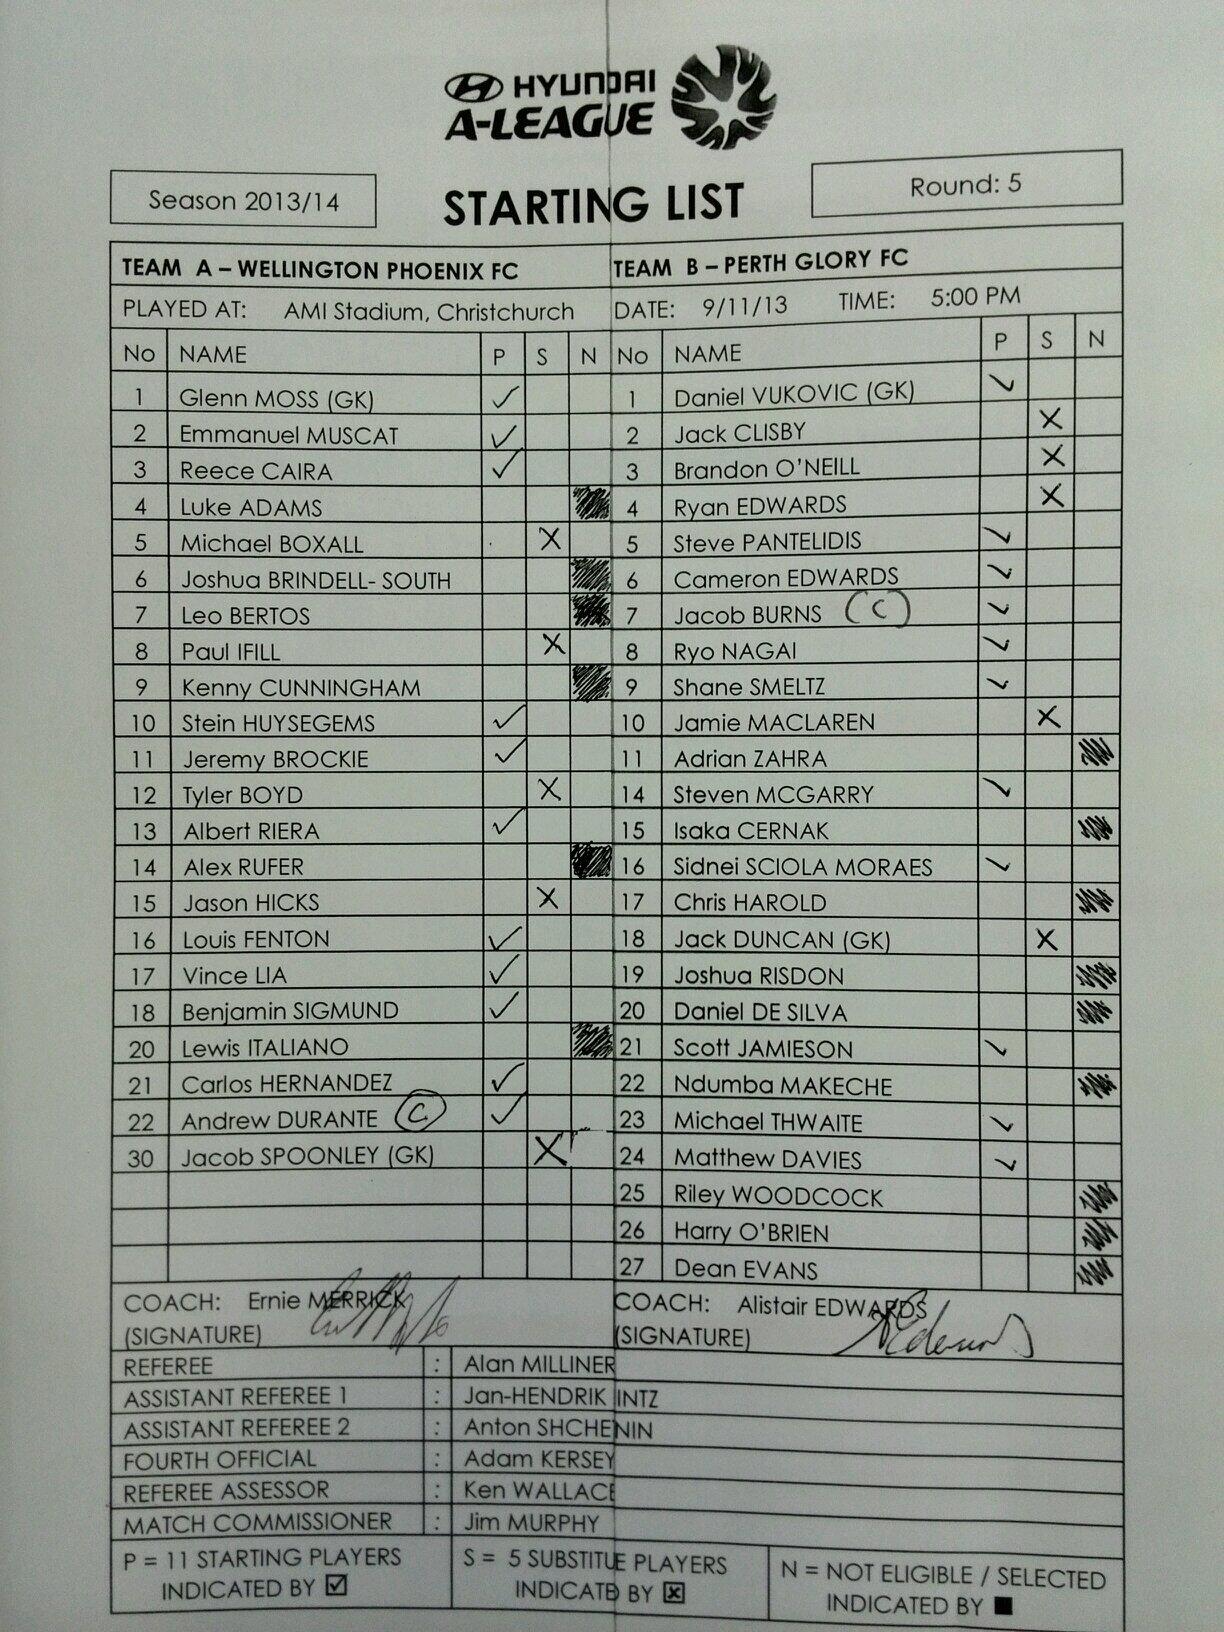 HYUNDAI
A-LEAGUE
Season 2013/14
STARTING LIST
Round: 5
TEAM A – WELLINGTON PHOENIX FC
TEAM B – PERTH GLORY FC
PLAYED AT: AMI Stadium, Christchurch
DATE: 9/11/13 TIME: 5:00 PM
No NAME P S N No NAME P S N
1 Glenn MOSS (GK) ✓ 1 Daniel VUKOVIC (GK) ✓
2 Emmanuel MUSCAT ✓ 2 Jack CLISBY X
3 Reece CAIRA ✓ 3 Brandon O'NEILL X
4 Luke ADAMS ■ 4 Ryan EDWARDS X
5 Michael BOXALL X 5 Steve PANTELIDIS ✓
6 Joshua BRINDELL- SOUTH ■ 6 Cameron EDWARDS ✓
7 Leo BERTOS ■ 7 Jacob BURNS (C) ✓
8 Paul IFILL X 8 Ryo NAGAI ✓
9 Kenny CUNNINGHAM ■ 9 Shane SMELTZ ✓
10 Stein HUYSEGEMS ✓ 10 Jamie MACLAREN X
11 Jeremy BROCKIE ✓ 11 Adrian ZAHRA ■
12 Tyler BOYD X 14 Steven MCGARRY ✓
13 Albert RIERA ✓ 15 Isaka CERNAK ■
14 Alex RUFER ■ 16 Sidnei SCIOLA MORAES ✓
15 Jason HICKS X 17 Chris HAROLD ■
16 Louis FENTON ✓ 18 Jack DUNCAN (GK) X
17 Vince LIA ✓ 19 Joshua RISDON ■
18 Benjamin SIGMUND ✓ 20 Daniel DE SILVA ■
20 Lewis ITALIANO ■ 21 Scott JAMIESON ✓
21 Carlos HERNANDEZ ✓ 22 Ndumba MAKECHE ■
22 Andrew DURANTE C ✓ 23 Michael THWAITE ✓
30 Jacob SPOONLEY (GK) X 24 Matthew DAVIES ✓
25 Riley WOODCOCK ■
26 Harry O'BRIEN ■
27 Dean EVANS ■
COACH: Ernie MERRICK
(SIGNATURE)
COACH: Alistair EDWARDS
(SIGNATURE)
REFEREE : Alan MILLINER
ASSISTANT REFEREE 1 : Jan-HENDRIK INTZ
ASSISTANT REFEREE 2 : Anton SHCHENIN
FOURTH OFFICIAL : Adam KERSEY
REFEREE ASSESSOR : Ken WALLACE
MATCH COMMISSIONER : Jim MURPHY
P = 11 STARTING PLAYERS
INDICATED BY ☑
S = 5 SUBSTITUE PLAYERS
INDICATD BY ☒
N = NOT ELIGIBLE / SELECTED
INDICATED BY ■